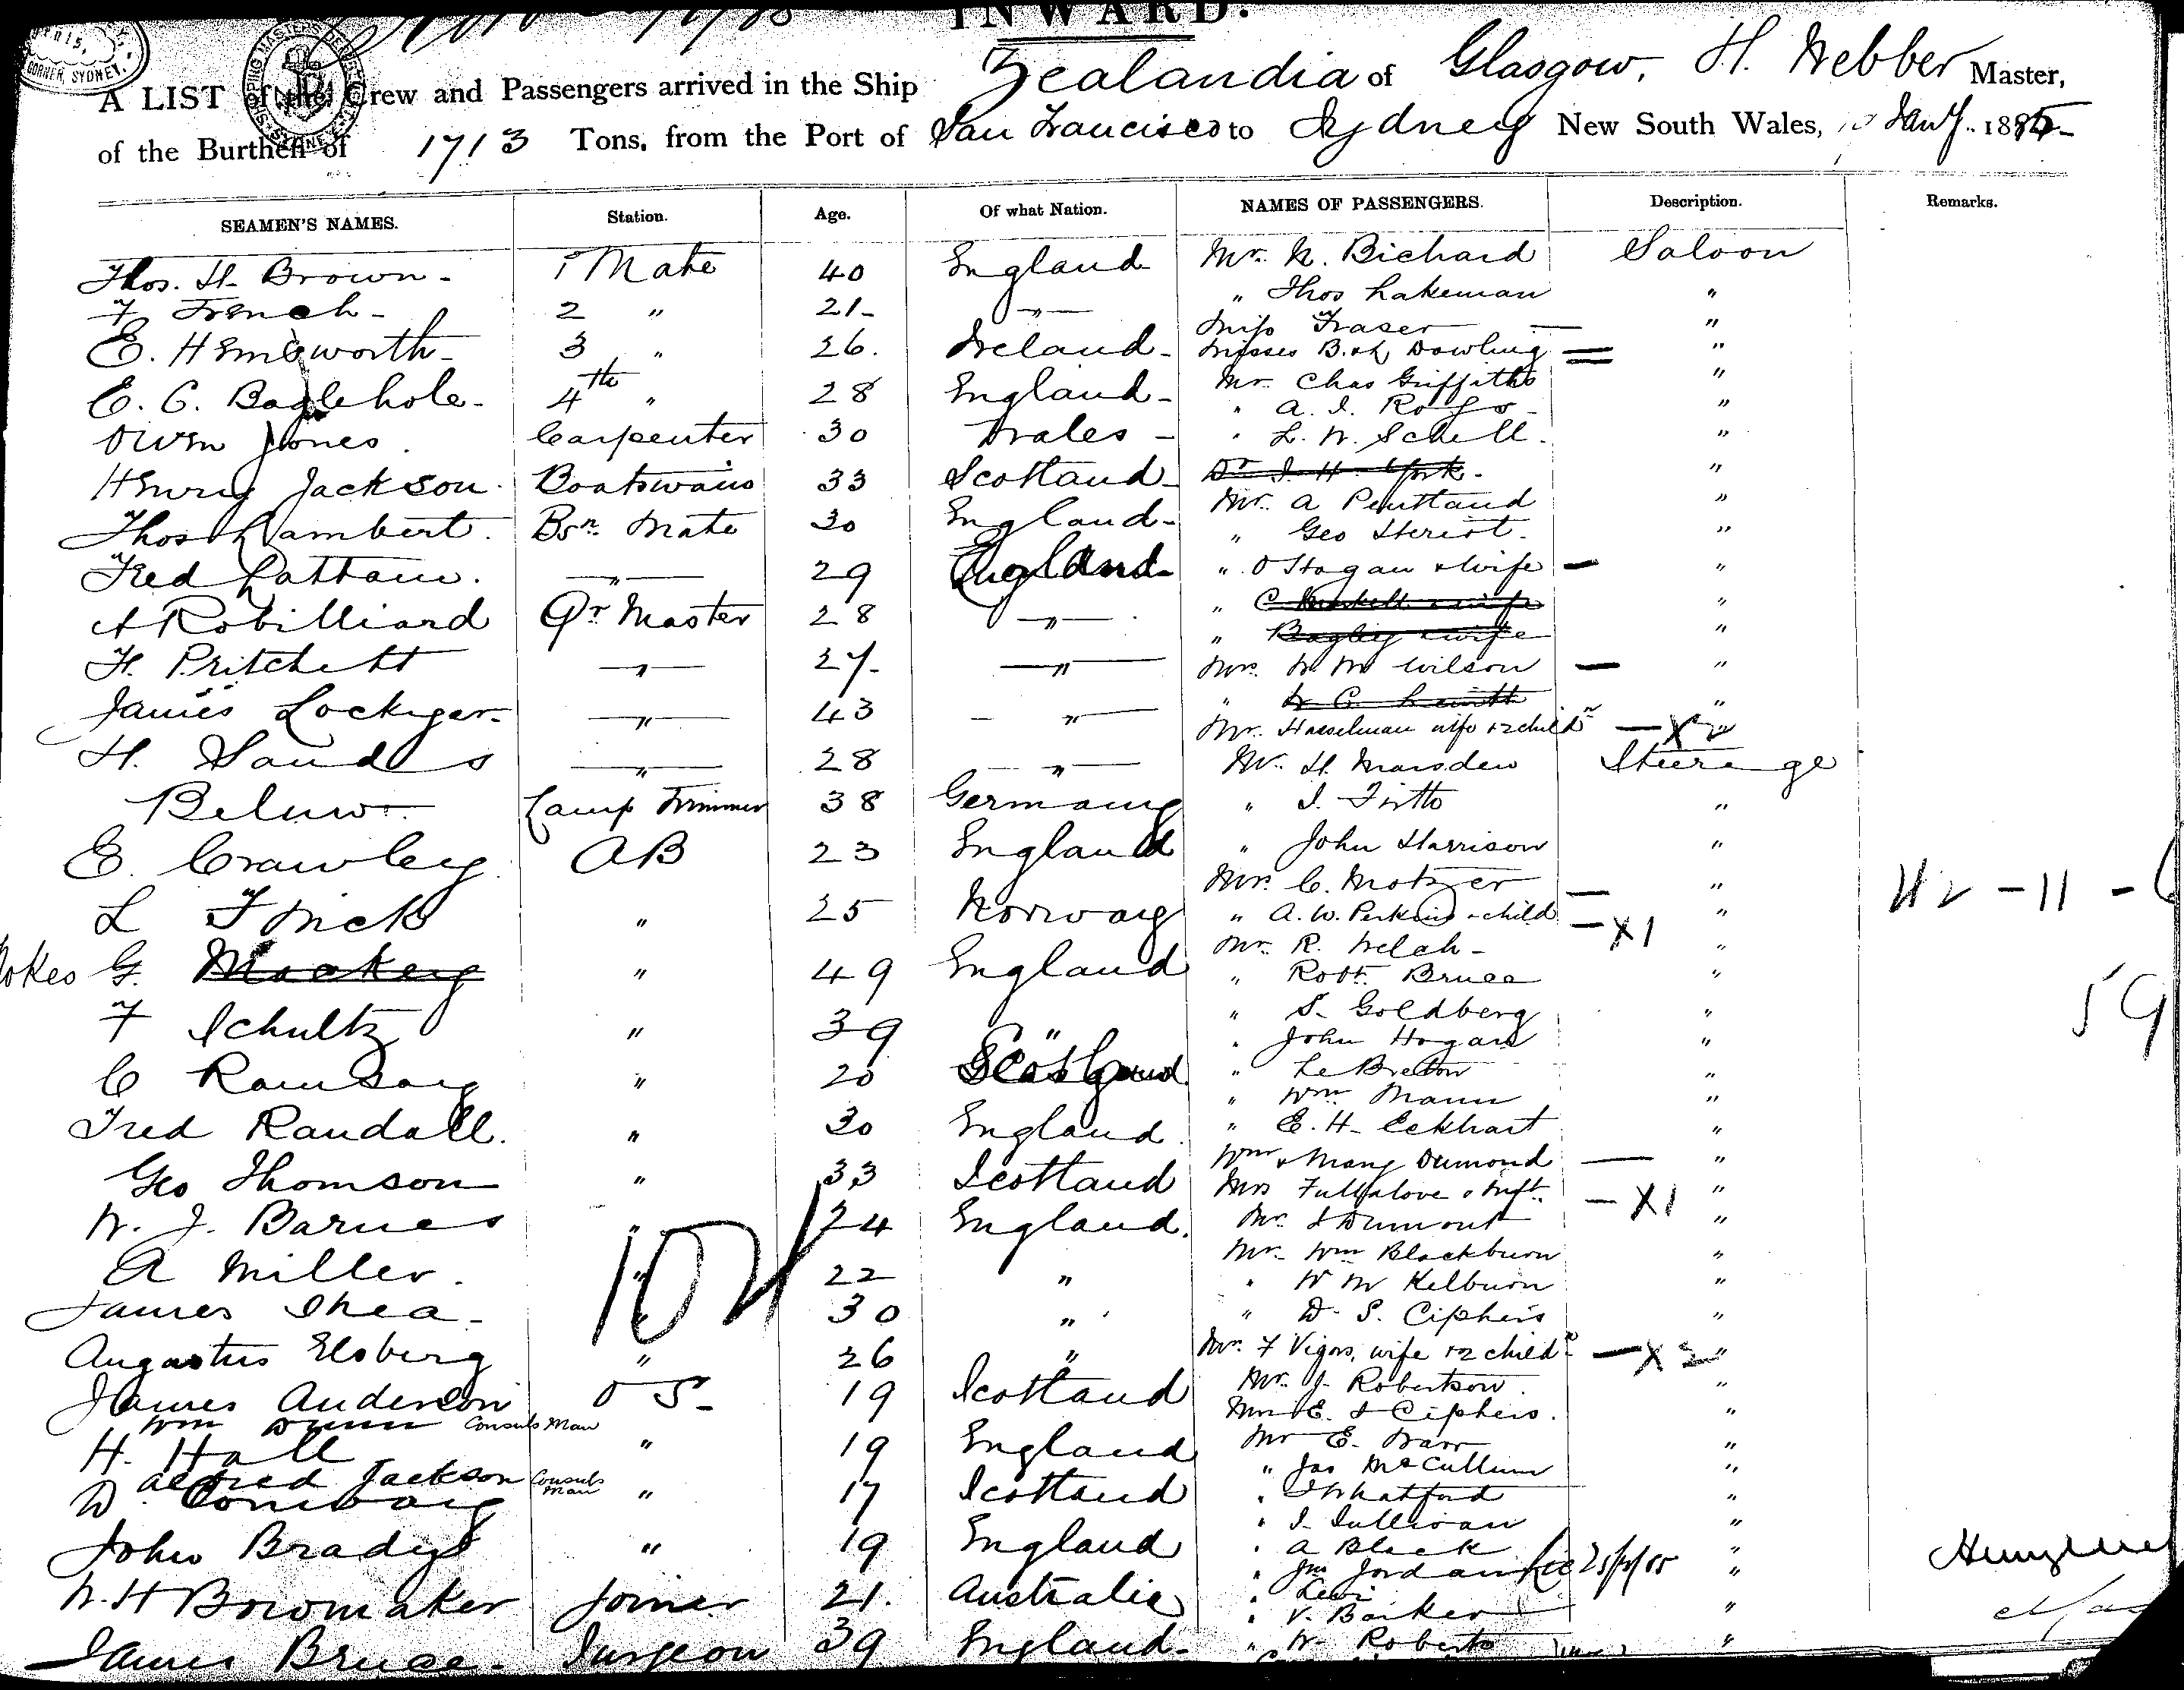 INWARD.
CORNER, SYDNEY.
A LIST of the Crew and Passengers arrived in the Ship Zealandia of Glasgow, H. Webber Master,
of the Burthen of 1713 Tons, from the Port of San Francisco to Sydney New South Wales, Jany. 1885
SEAMEN'S NAMES. Station. Age. Of what Nation. NAMES OF PASSENGERS. Description. Remarks.
Thos. H. Brown - 1 Mate 40 England Mr. N. Bichard Saloon
F French - 2 " 21 - " " Thos Lakeman "
Miss Fraser "
E. Hemsworth - 3 " 26. Ireland - Misses B. & Dowling "
E. C. Baglehole - 4th " 28 England - Mr. Chas Griffiths "
" A. I. Ross "
Owen Jones. Carpenter 30 Wales - " L. W. Schell. "
Henry Jackson. Boatswain 33 Scotland - Dr I. H. York. "
Mr. A Pentland "
Thos Lambert. Bsn Mate 30 England - " Geo Heriot. "
Fred Lattam. " 29 England - " O Hogan & wife - "
A Robilliard Qr Master 28 " " C & wife "
" Bagley & wife "
H. Pritchett " 27 - " Mrs. W M Wilson - "
James Lockyer - " 43 - " " "
Mr. Hasselman wife & 2 childn - X 2
H. Sands " 28 " Mr. H. Marsden Steerage
Beluw Lamp Trimmer 38 Germany " I. Firth "
E. Crawley AB 23 England " John Harrison "
Mrs. C. Motzer - "
L Frick " 25 Norway " A. W. Perkins & child - X 1 " 42 - 11 -
Mr. R. Welch - "
G. Mackey " 49 England " Robt. Bruce "
" S. Goldberg " 59
F Schultz " 39 " " John Hogan "
C Ramsay " 20 Scotland " Le Breton "
" Wm Mann "
Fred Randall. " 30 England. " E. H. Eckhart "
Wm & Mary Dumond - "
Geo Thomson " 33 Scotland Mrs Fullalove & Inft. - X 1 "
W. J. Barnes " 24 England. Mr. Dumont "
102
Mr. Wm Blackburn "
A Miller. " 22 " " W M Kelburn "
James Shea - " 30 " " D. S. Ciphers "
Augustus Elsberg " 26 " Mr. F Vigors, wife & 2 childn - X 2 "
James Anderson O S - 19 Scotland Mr. J. Robertson. "
Wm Dunn Consuls Man Mrs E. & Ciphers. "
H. Hall " 19 England Mr E. "
Alfred Jackson Consuls Man " Jas McCullum "
D. Conway " 17 Scotland " Whatford "
" I. Sullivan "
John Brady " 19 England " A Black "
" Jno Jordan "
W. H Bowmaker Joiner 21. Australia " Levi
" V. Barker "
James Bruce - Surgeon 39 England - " W. Roberts "